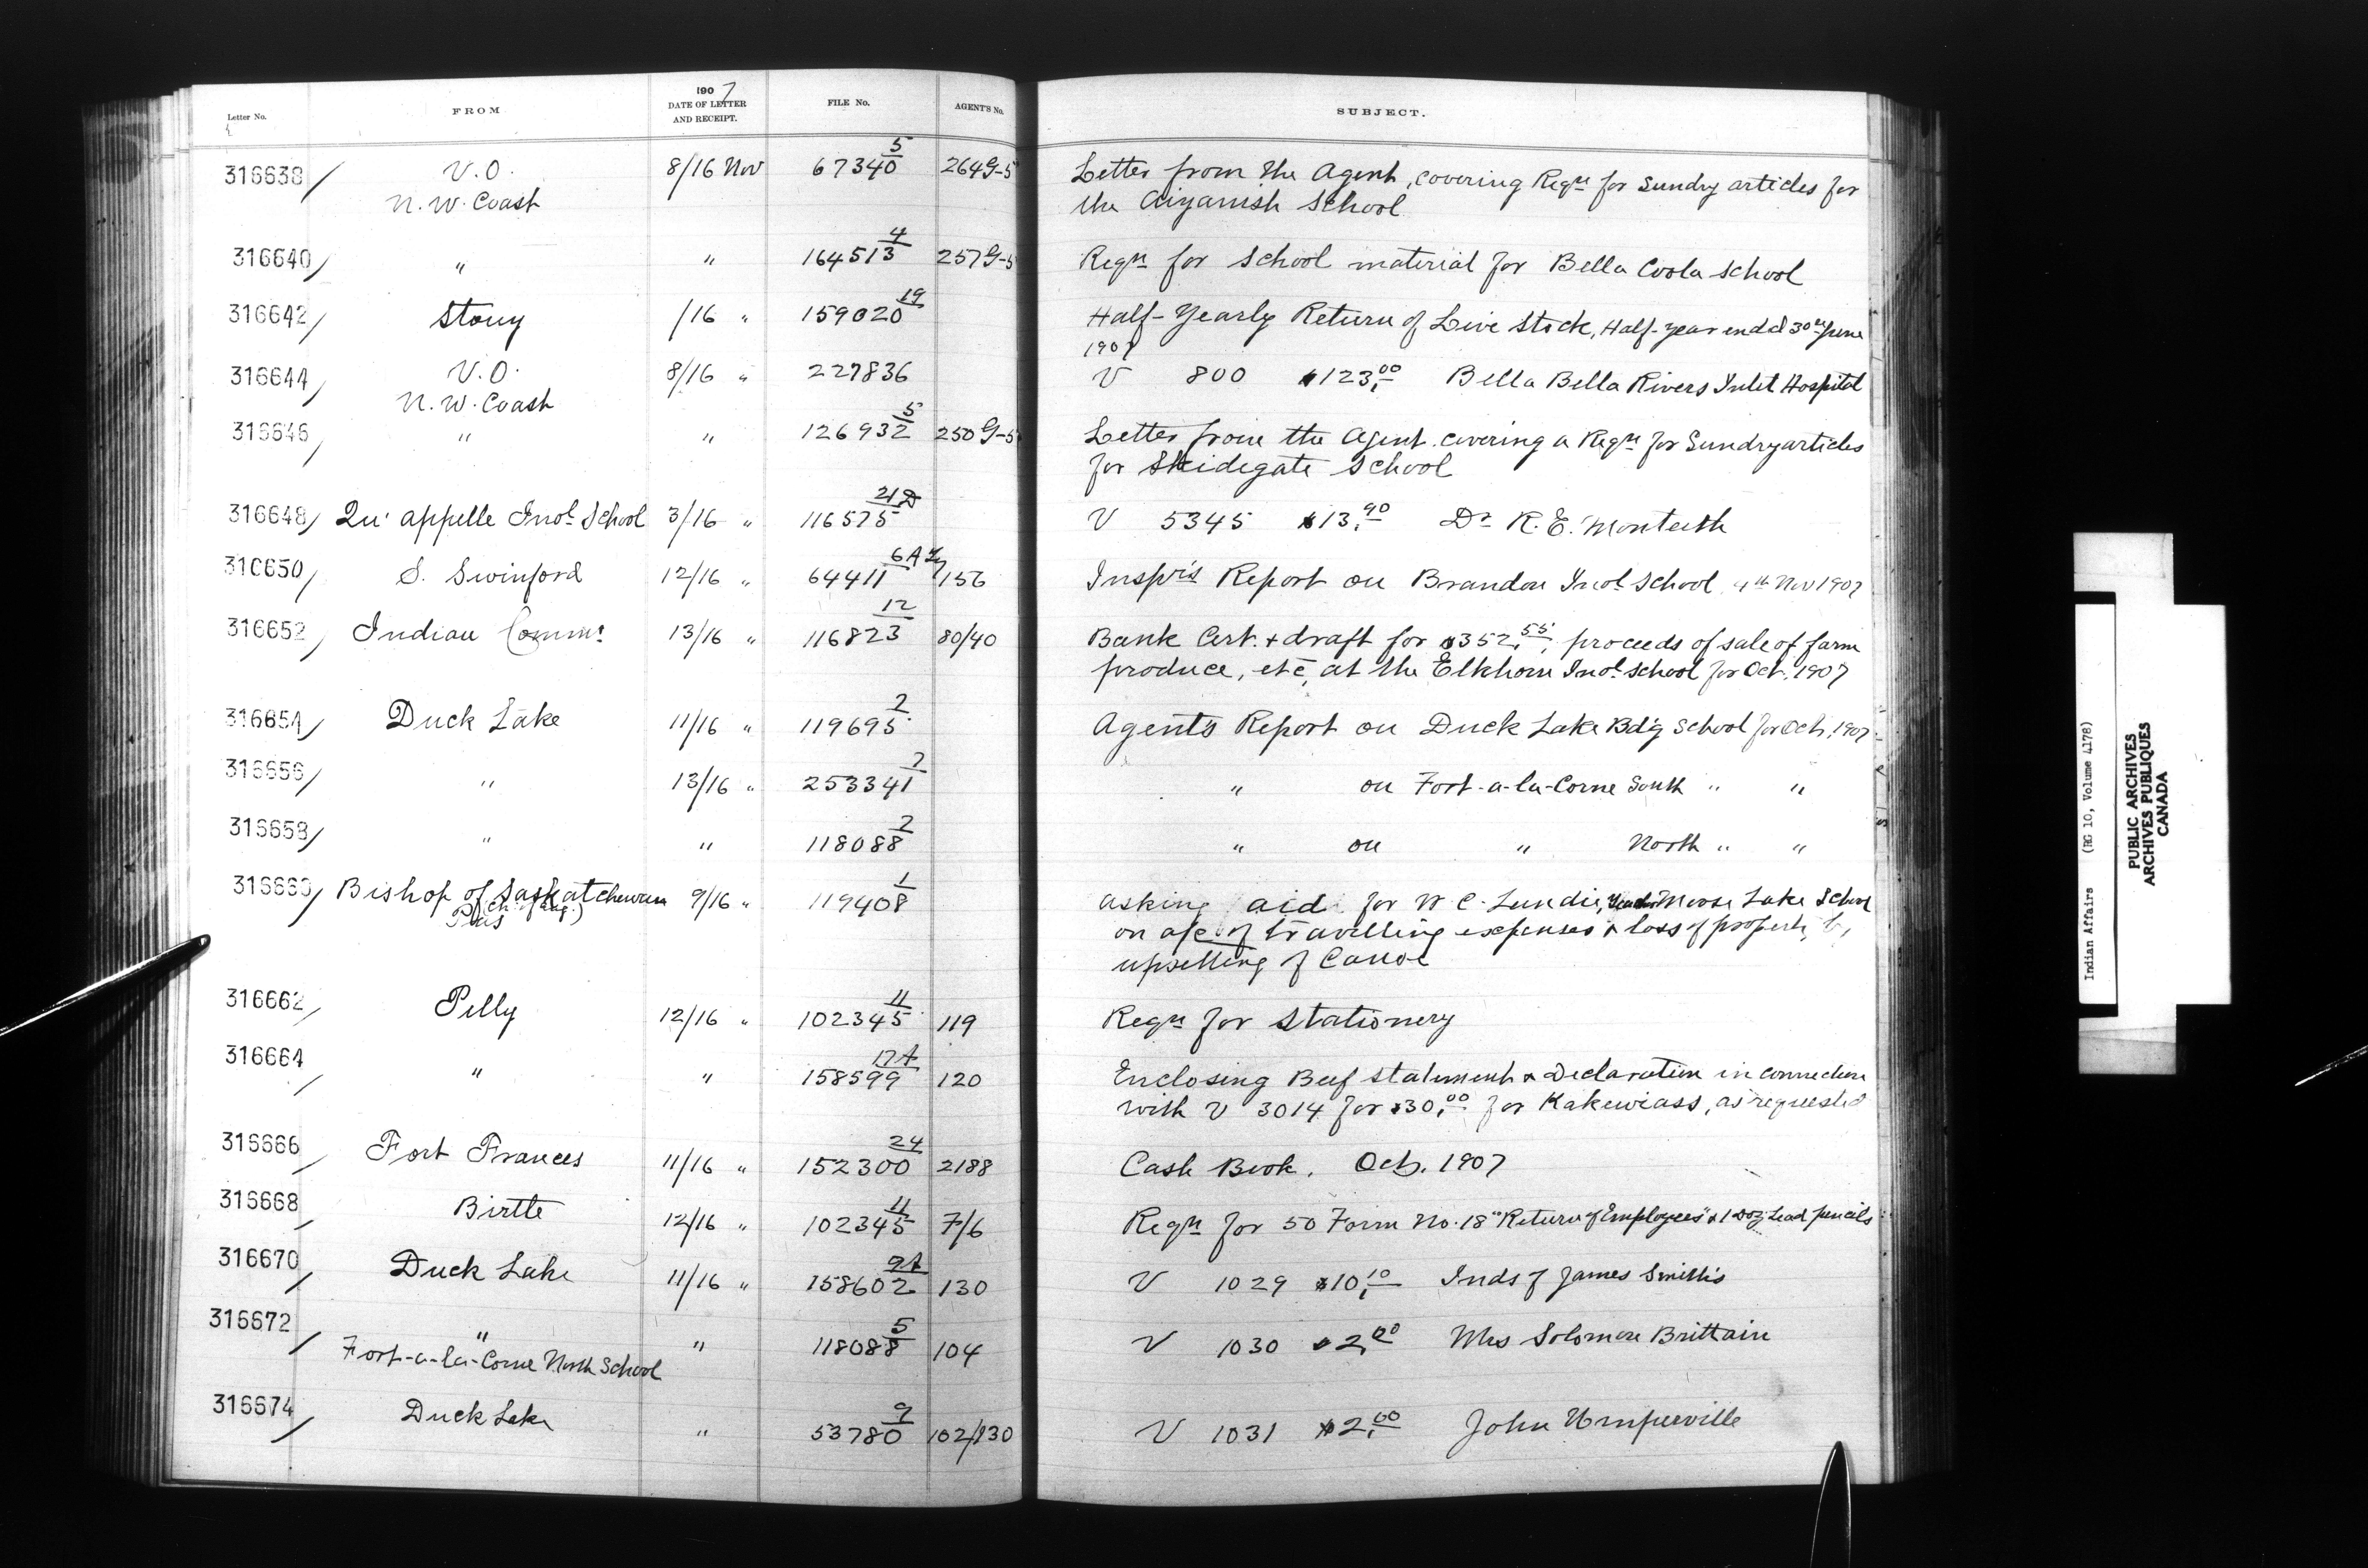 Letter No. FROM 1907 DATE OF LETTER AND RECEIPT. FILE No. AGENT'S No. SUBJECT.
316638/ V.O. 8/16 Nov 67340 5 264G-5 Letter from the Agent, covering Reqn for Sundry articles for
N.W. Coast the Aiyansh School
316640/ " " 164513 4 257G-5 Reqn for School material for Bella Coola School
316642/ Stony /16 " 159020 19 Half-Yearly Return of Live Stock, Half-year ended 30th June
1907
316644/ V.O. 8/16 " 227836 V 800 $123.00 Bella Bella Rivers Inlet Hospital
N.W. Coast
316646/ " " 126932 5 250G-5 Letter from the Agent covering a Reqn for Sundry articles
for Skidegate School
316648/ Qu'appelle Indl School 3/16 " 116575 21D V 5345 $13.90 Dr R.E. Monteith
316650/ S. Swinford 12/16 " 64411 6A 156 Insp'rs Report on Brandon Indl School, 4th Nov 1907
316652/ Indian Commr 13/16 " 116823 12 80/40 Bank Cert. + draft for $352.55, proceeds of sale of farm
produce, etc, at the Elkhorn Indl School for Oct. 1907
316654/ Duck Lake 11/16 " 119695 2 Agent's Report on Duck Lake Bd'g School for Oct. 1907
316656/ " 13/16 " 253341 2 " on Fort-a-la-Corne South " "
316658/ " " 118088 2 " on " North " "
316660/ Bishop of Saskatchewan 9/16 " 119408 1 asking aid for W C. Lundie, Moose Lake School
(Ch. of Eng.) on a/c of travelling expenses & loss of property by
Pas upsetting of Canoe
316662/ Pelly 12/16 " 102345 11 119 Reqn for Stationery
316664/ " " 158599 17A 120 Enclosing Beef Statement & Declaration in connection
with V 3014 for $30.00 for Kakewiass, as requested
316666/ Fort Frances 11/16 " 152300 24 2188 Cash Book. Oct. 1907
316668/ Birtle 12/16 " 102345 11 7/6 Reqn for 50 Form No. 18 "Return of Employees" & 1 Doz Lead pencils
316670/ Duck Lake 11/16 " 158602 9A 130 V 1029 $10.10 Inds of James Smith's
316672/ " " 118088 5 104 V 1030 $2.00 Mrs Solomon Brittain
Fort-a-la-Corne North School
316674/ Duck Lake " 53780 9 102/130 V 1031 $2.00 John Umpherville
Indian Affairs (RG 10, Volume 4178)
PUBLIC ARCHIVES
ARCHIVES PUBLIQUES
CANADA